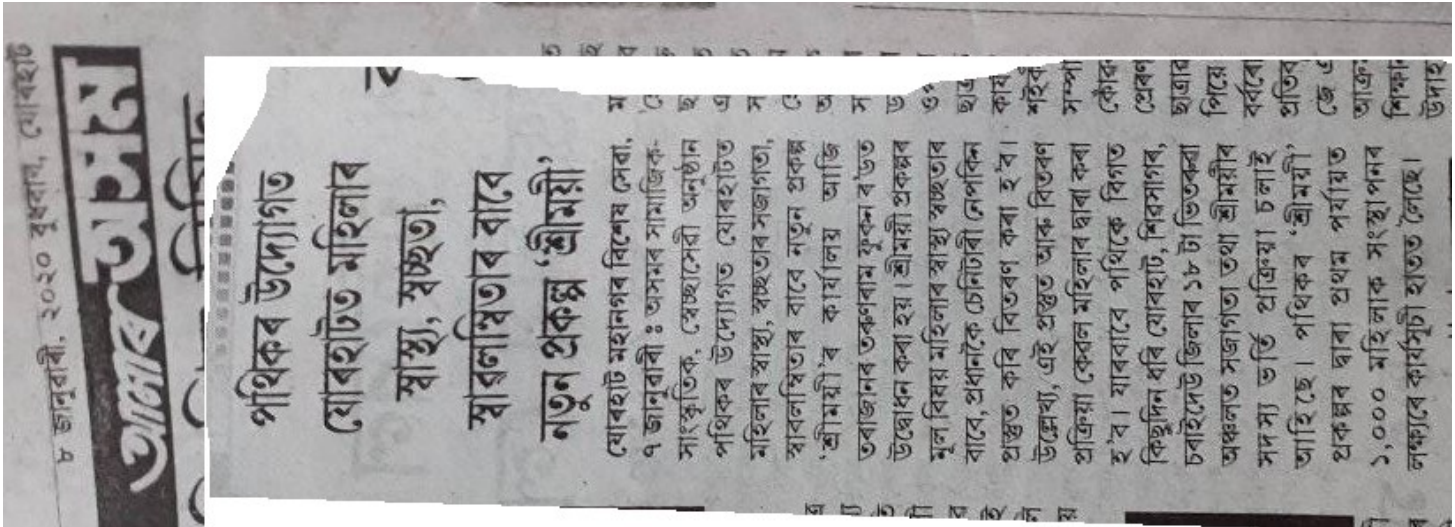 ৮ জানুৱাৰী, ২০২০ বুধবাৰ, যোৰহাট
আমাৰ অসম
পথিকৰ উদ্যোগত
যোৰহাটত মহিলাৰ
স্বাস্থ্য, স্বচ্ছতা,
স্বাৱলম্বিতাৰ বাবে
নতুন প্ৰকল্প ‘শ্ৰীময়ী’
যোৰহাট মহানগৰ বিশেষ সেৱা,
৭ জানুৱাৰী : অসমৰ সামাজিক-
সাংস্কৃতিক, স্বেচ্ছাসেৱী অনুষ্ঠান
পথিকৰ উদ্যোগত যোৰহাটত
মহিলাৰ স্বাস্থ্য, স্বচ্ছতাৰ সজাগতা,
স্বাৱলম্বিতাৰ বাবে নতুন প্ৰকল্প
‘শ্ৰীময়ী’ৰ কাৰ্যালয় আজি
তৰাজানৰ তৰুণৰাম ফুকন ৰ'ডত
উদ্বোধন কৰা হয়। শ্ৰীময়ী প্ৰকল্পৰ
মূল বিষয় মহিলাৰ স্বাস্থ্য স্বচ্ছতাৰ
বাবে, প্ৰধানকৈ চেনিটাৰী নেপকিন
প্ৰস্তুত কৰি বিতৰণ কৰা হ'ব।
উল্লেখ্য, এই প্ৰস্তুত আৰু বিতৰণ
প্ৰক্ৰিয়া কেৱল মহিলাৰ দ্বাৰা কৰা
হ'ব। যাৰবাবে পথিকে বিগত
কিছুদিন ধৰি যোৰহাট, শিৱসাগৰ,
চৰাইদেউ জিলাৰ ১৮ টা ভিতৰুৱা
অঞ্চলত সজাগতা তথা শ্ৰীময়ীৰ
সদস্য ভৰ্তি প্ৰক্ৰিয়া চলাই
আহিছে। পথিকৰ ‘শ্ৰীময়ী’
প্ৰকল্পৰ দ্বাৰা প্ৰথম পৰ্যায়ত
১,০০০ মহিলাক সংস্থাপনৰ
লক্ষ্যৰে কাৰ্যসূচী হাতত লৈছে।